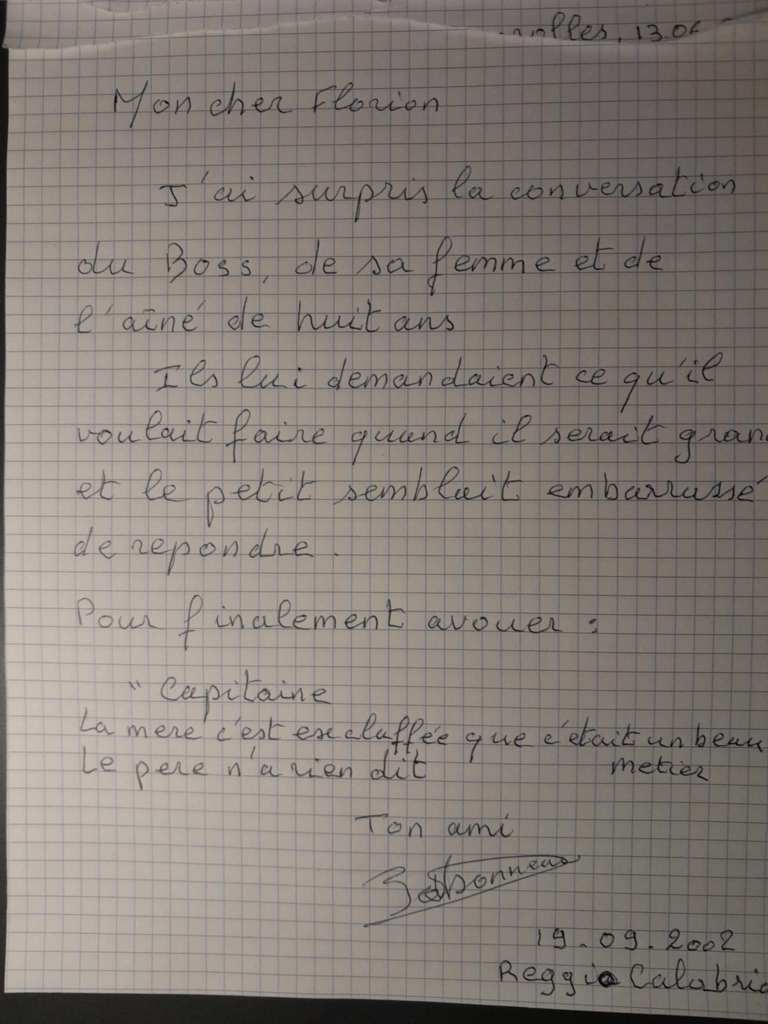 13.06
Mon cher Florian
J'ai surpris la conversation
du Boss, de sa femme et de
l'aîné de huit ans
Ils lui demandaient ce qu'il
voulait faire quand il serait gran
et le petit semblait embarrassé
de repondre.
Pour finalement avouer :
" Capitaine
La mere c'est esclaffée que c'était un beau
metier
Le pere n'a rien dit
Ton ami
19.09.2002
Reggio Calabria